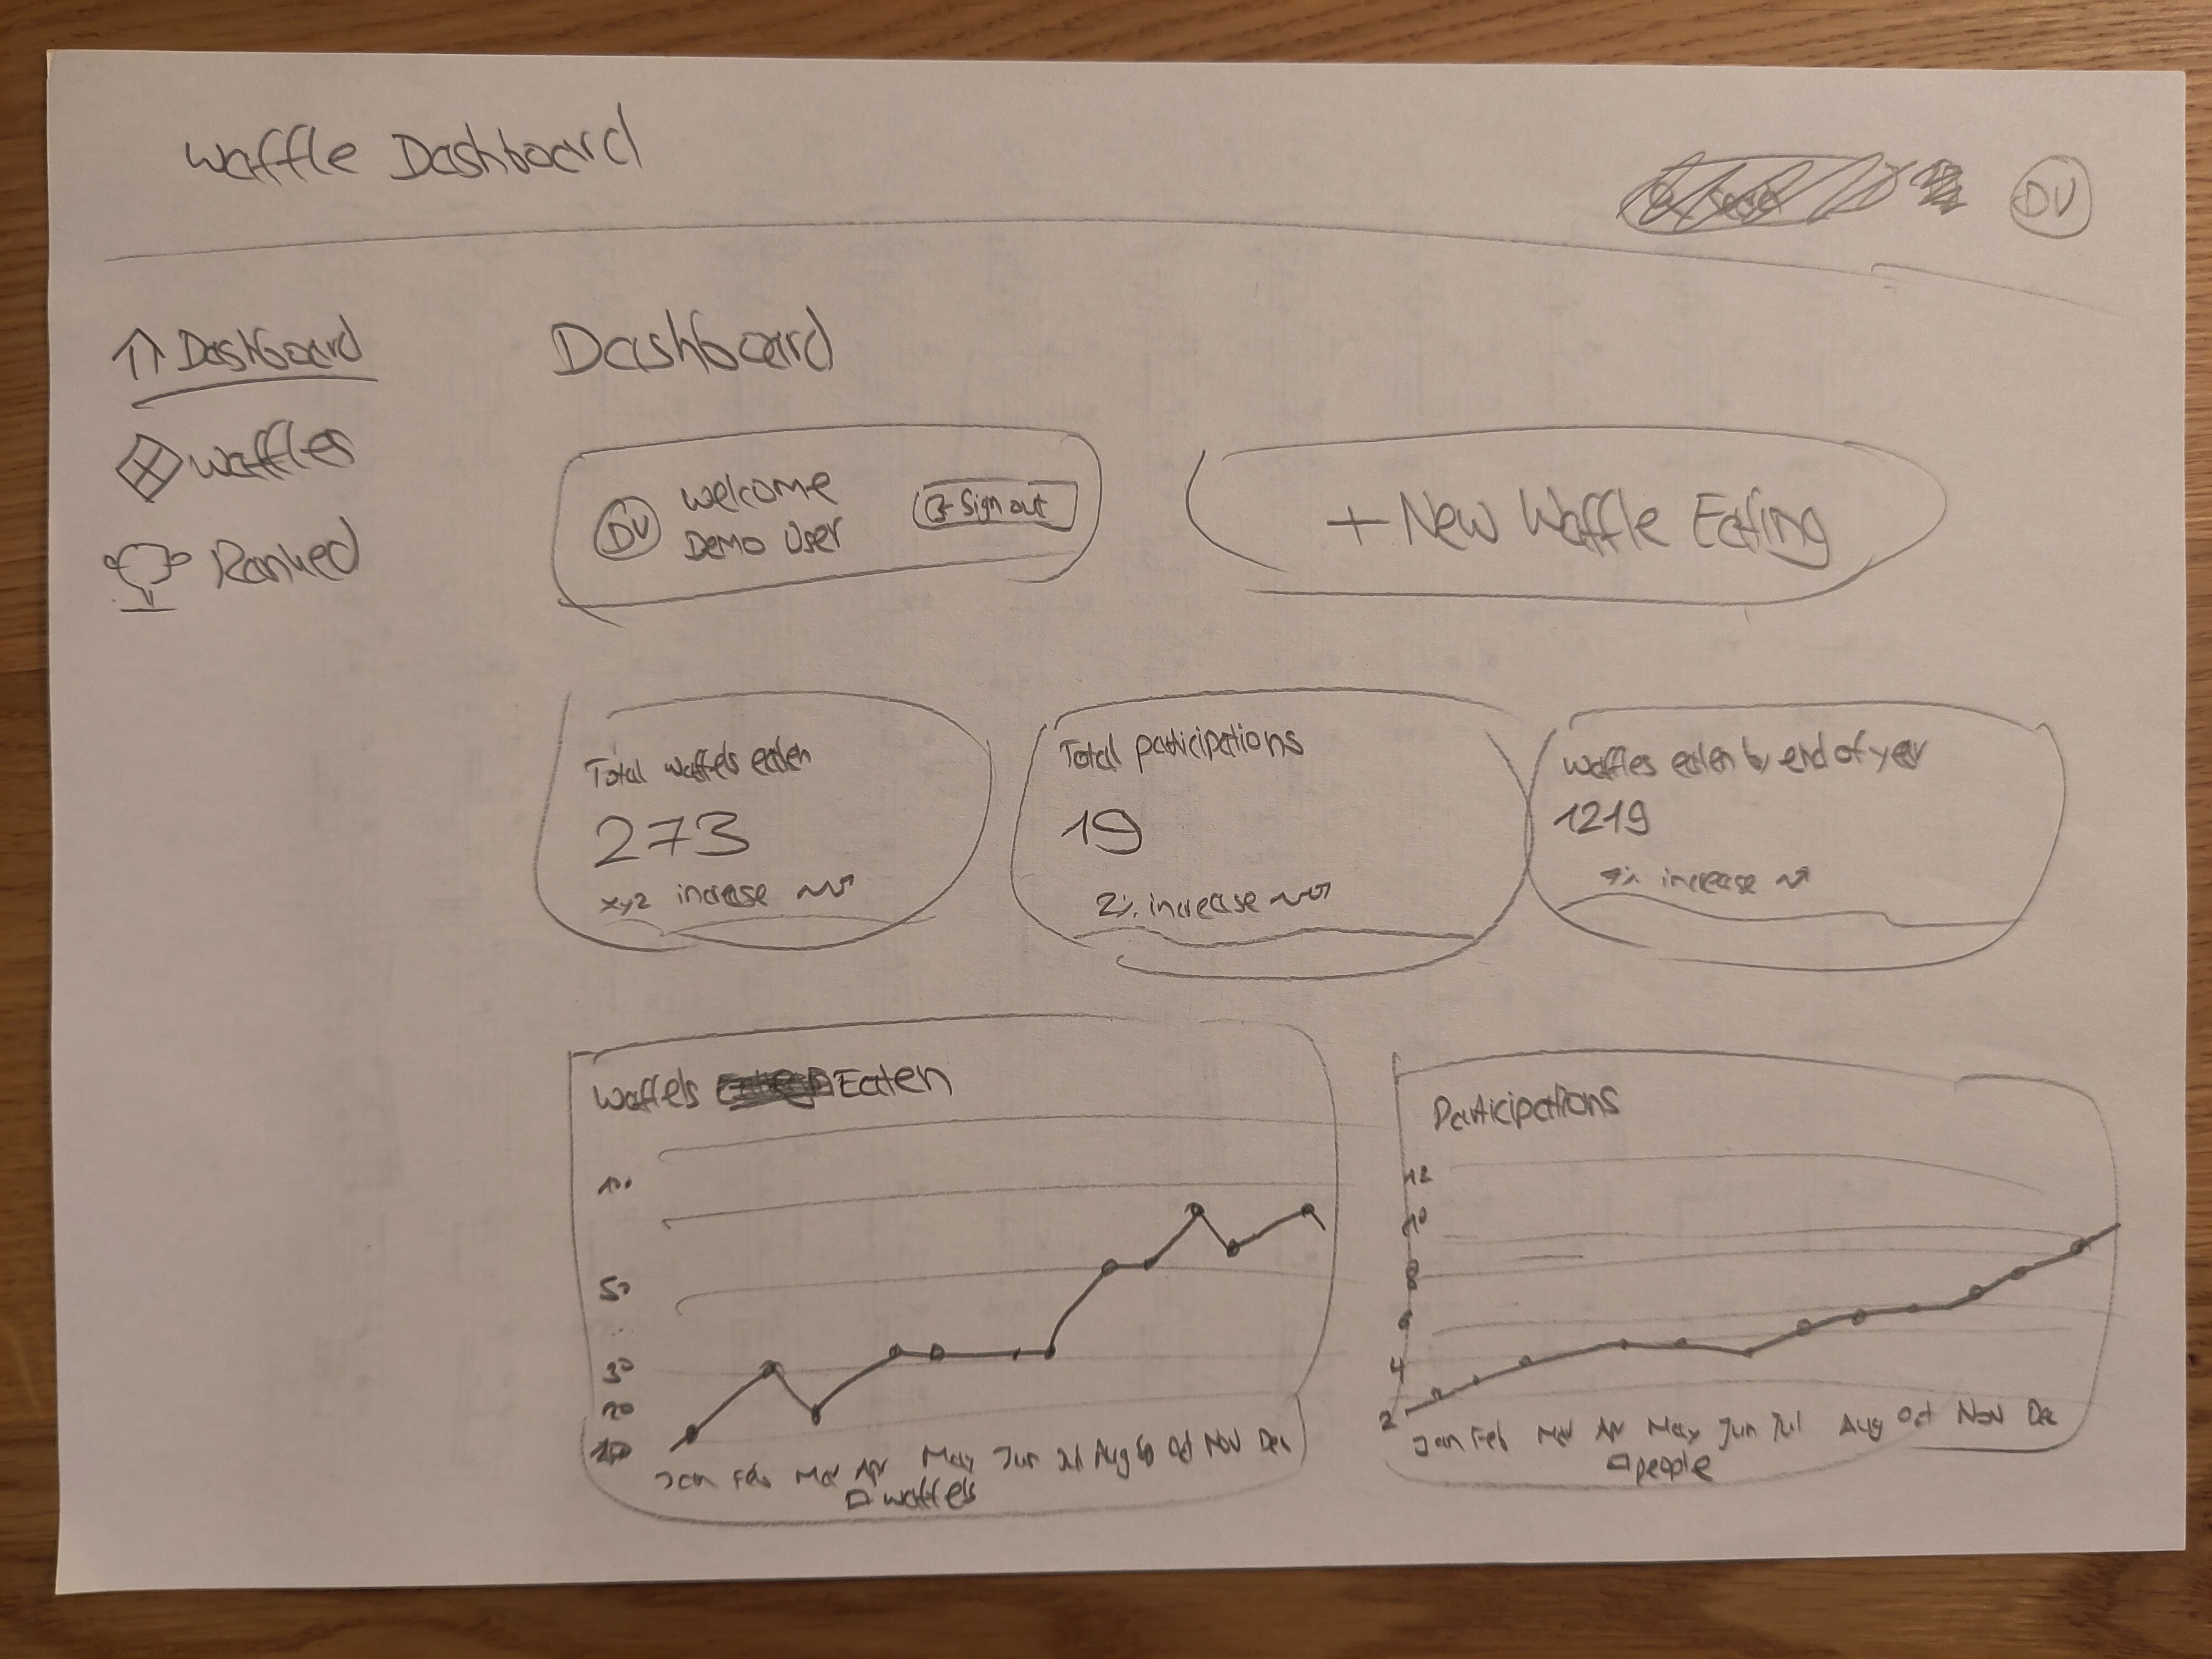 Waffle Dashboard
DU
Dashboard
Waffles
Ranked
Dashboard
DU
Welcome
Demo User
Sign out
+ New Waffle Eating
Total waffels eaten
273
xyz increase
Total participations
19
2% increase
Waffles eaten by end of year
1219
% increase
Waffels Eaten
100
50
30
20
Jan Feb Mar Apr May Jun Jul Aug Oct Nov Dec
waffels
Participations
12
10
8
6
4
2
Jan Feb Mar Apr May Jun Jul Aug Oct Nov Dec
people